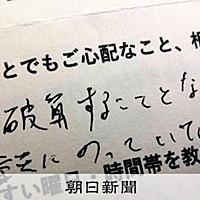 とでもご心配なこと、相
破算することとな
のっていて
時間帯を教
すい曜日・時間
朝日新聞